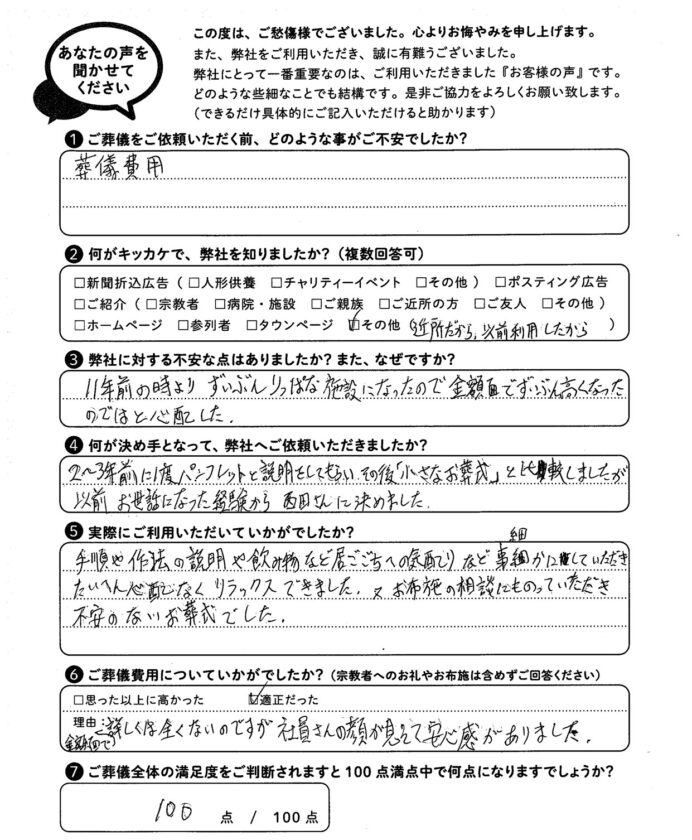 あなたの声を
聞かせて
ください
この度は、ご愁傷様でございました。心よりお悔やみを申し上げます。
また、弊社をご利用いただき、誠に有難うございました。
弊社にとって一番重要なのは、ご利用いただきました『お客様の声』です。
どのような些細なことでも結構です。是非ご協力をよろしくお願い致します。
(できるだけ具体的にご記入いただけると助かります)
❶ ご葬儀をご依頼いただく前、どのような事がご不安でしたか?
葬儀費用
❷ 何がキッカケで、弊社を知りましたか?(複数回答可)
□新聞折込広告(□人形供養 □チャリティーイベント □その他) □ポスティング広告
□ご紹介(□宗教者 □病院・施設 □ご親族 □ご近所の方 □ご友人 □その他)
□ホームページ □参列者 □タウンページ ☑その他(近所だから,以前利用したから)
❸ 弊社に対する不安な点はありましたか?また、なぜですか?
11年前の時より ずいぶんりっぱな施設になったので 金額面でずいぶん高くなった
のではと心配した.
❹ 何が決め手となって、弊社へご依頼いただきましたか?
2〜3年前に1度パンフレットと説明をしてもらい その後「小さなお葬式」と比較しましたが
以前 お世話になった経験から 西田さんに決めました.
❺ 実際にご利用いただいていかがでしたか?
手順や作法の説明や飲み物など居ごこちへの気配りなど事細かにしていただき
たいへん心配なくリラックスできました. 又 お布施の相談にものっていただき
不安のないお葬式でした.
❻ ご葬儀費用についていかがでしたか?(宗教者へのお礼やお布施は含めずご回答ください)
□思った以上に高かった ☑適正だった
理由:詳しくは全くないのですが 社員さんの顔が見えて安心感がありました.
金額面で
❼ ご葬儀全体の満足度をご判断されますと100点満点中で何点になりますでしょうか?
100 点 / 100点